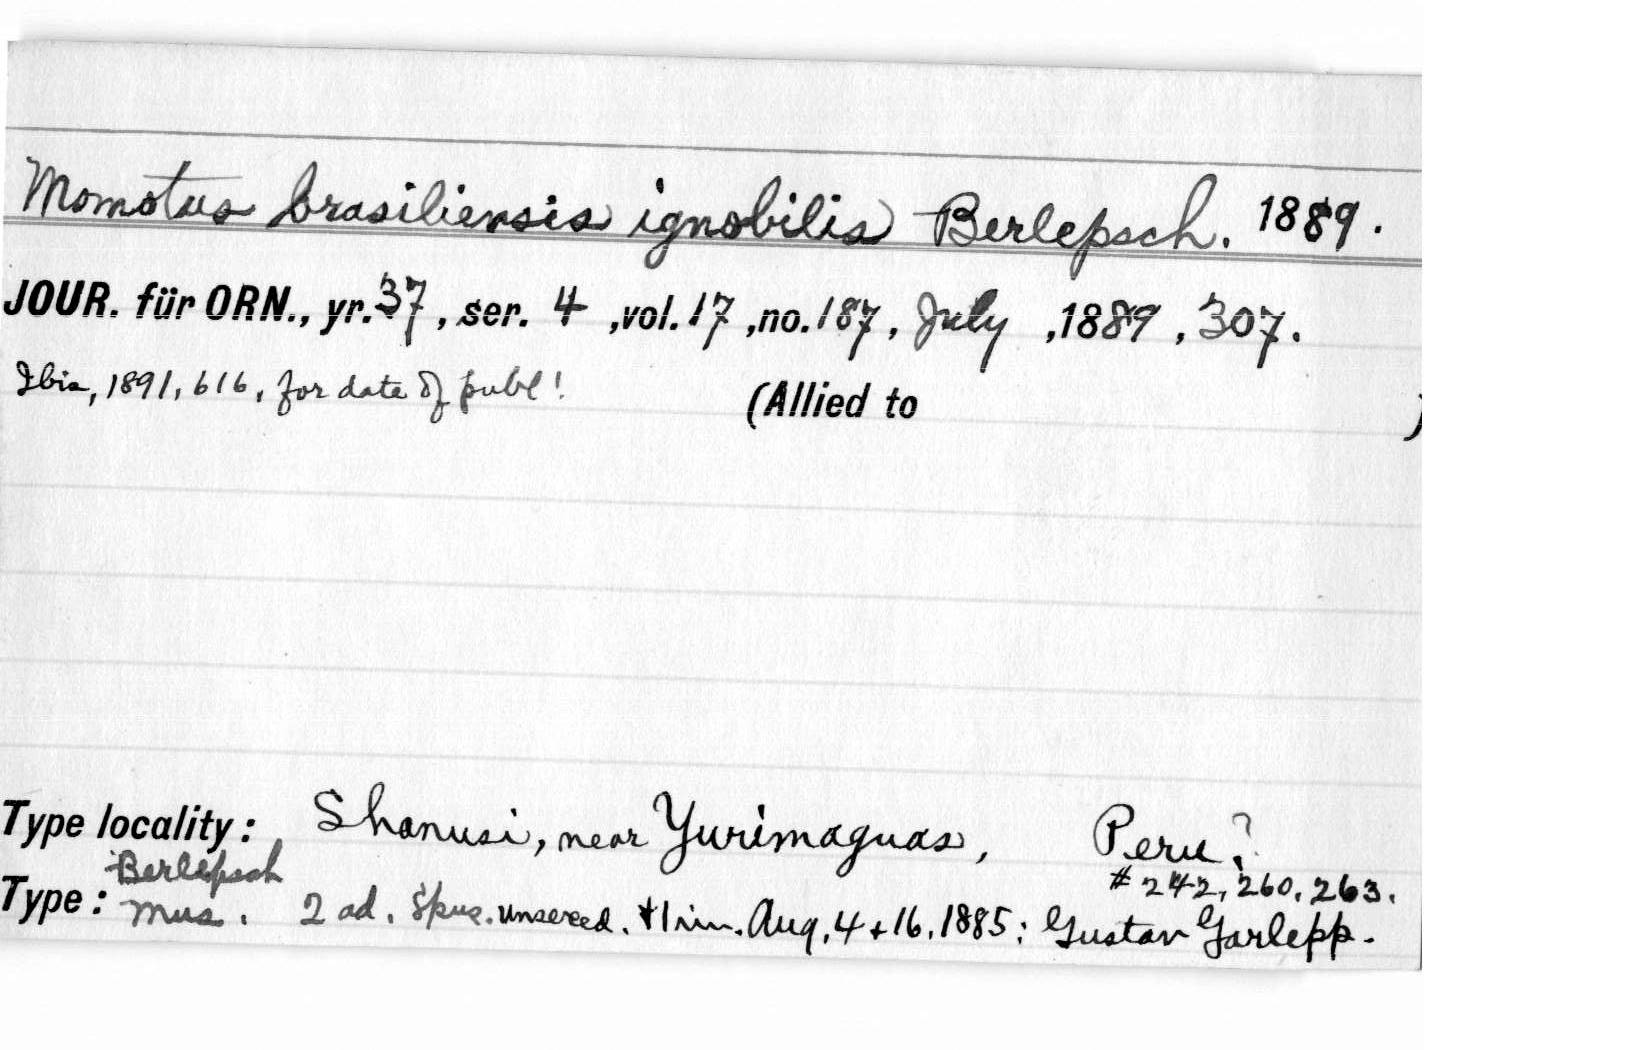 Momotus brasiliensis ignobilis Berlepsch. 1889.
JOUR. für ORN., yr. 37, ser. 4, vol. 17, no. 187, July, 1889, 307.
Ibis, 1891, 616, for date of publ!
(Allied to )
Type locality: Shanusi, near Yurimaguas, Peru?
# 242, 260, 263.
Type: Berlepsch Mus. 2 ad. Spec. unsexed. + 1 im. Aug. 4 + 16, 1885; Gustav Garlepp.